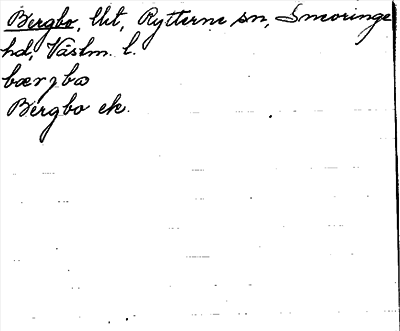 Bergbo, lht, Rytterne sn, Snevringe
hd, Västm. l.
bærʒbω
Bergbo ek.